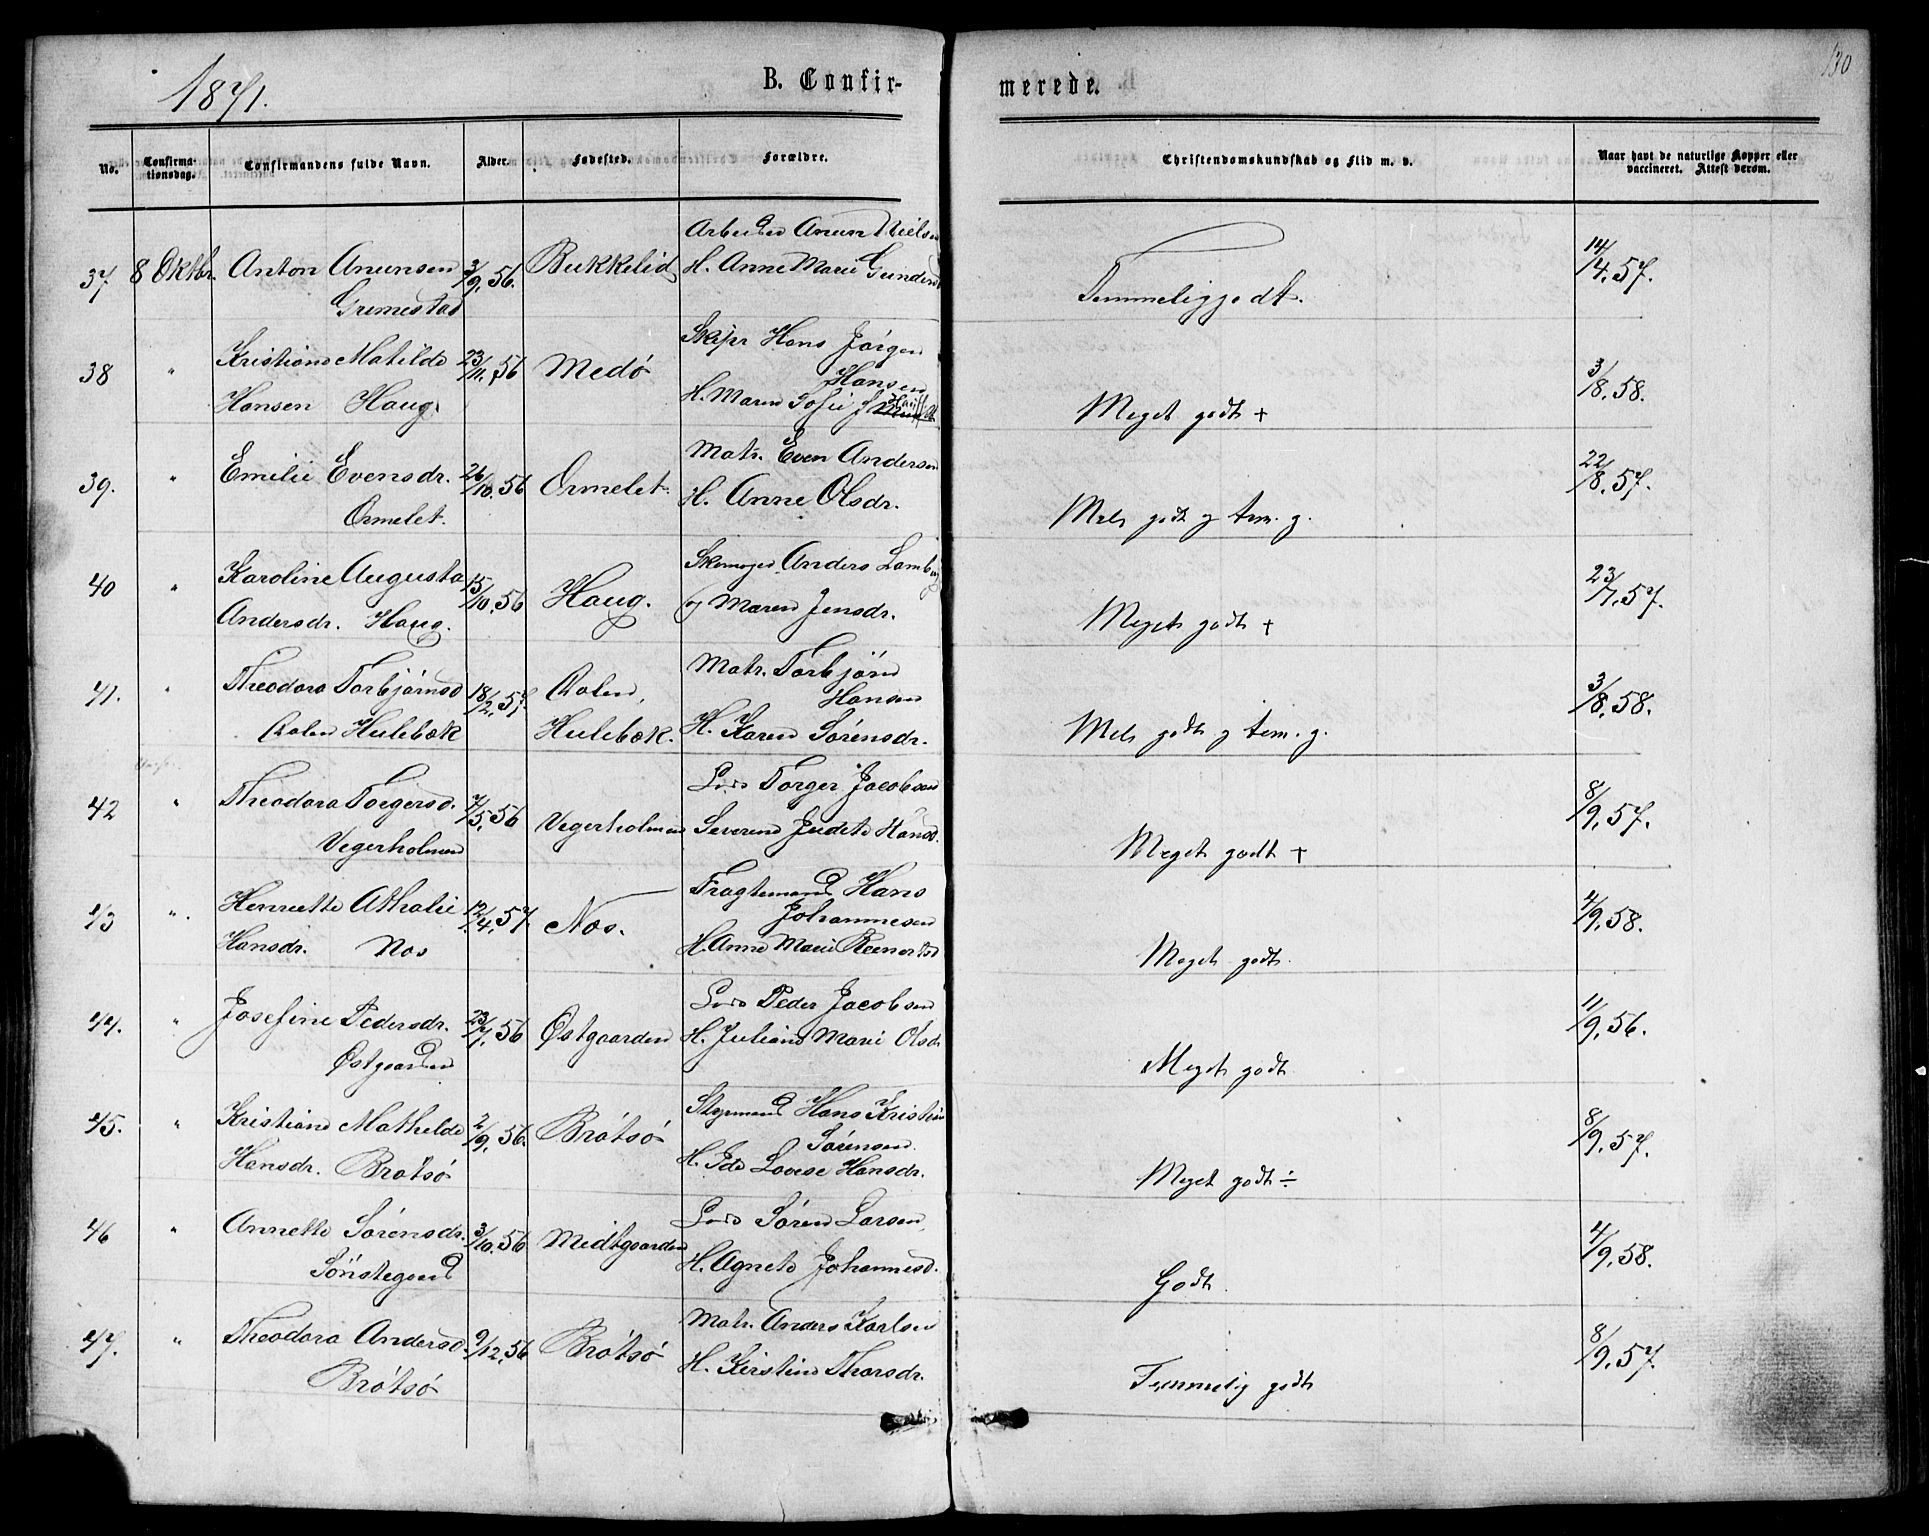 130
1871.
B. Confirmerede.
No. Confirmationsdag. Confirmandens fulde Navn. Alder. Fødested. Forældre. Christendomskundskab og Flid m. v. Naar havt de naturlige Kopper eller vaccineret. Attest derom.
Arbeider Anun Nielsen
37 8 Oktbr. Anton Anunsen 3/9.56. Bukkelid H. Anne Marie Gundersd 14/4.57.
Grimestad Temmelig godt.
Skipr Hans Jørgen
38 " Kristiane Matilde 23/11.56 Medö Hansen 3/8.58.
Hansen Haug. H. Maren Sofie Meget godt +
Matr. Even Andersen
39. " Emilie Evensdr. 26/10.56 Ormelet. H. Anne Olsdr. 22/8.57.
Ormelet. Mels godt og tem. g.
Anders Lamberg
40 " Karoline Augusta 15/10.56 Haug. og Maren Jensdr. 23/7.57.
Andersdr. Haug. Meget godt +
Matr. Torbjörn
41. " Theodora Torbjörnsd 18/2.57. Rølen, Hansen 3/8.58.
Rølen Hulebæk Hulebæk. H. Karen Sörensdr. Mels godt og tem. g.
Lods Torger Jacobsen
42 " Theodora Torgersd. 7/5.56 Vegerholmen Severine Judete Hansd. 8/9.57.
Vegerholmen Meget godt +
Fragtemand Hans
43 " Henriette Athalie 12/4.57. Nos. Johannesen 4/9.58.
Hansdr. Nos H. Anne Marie Reenertsd Meget godt.
Lods Peder Jacobsen
44. " Josefine Pedersdr. 23/7.56 Østgaarden H. Juliane Marie Olsdr 11/9.56.
Østgaarden Meget godt
Styrmand Hans Kristian
45. " Kristiane Mathilde 2/9.56. Brötsö Sörensen. 8/9.57.
Hansdr. Brötsö H. Ide Lovise Hansdr. Meget godt ÷
Lods Sören Larsen,
46 " Annette Sörensdr. 3/10.56 Midtgaarden H. Agnete Johannesd. 4/9.58.
Sönstegaard Godt.
Matr. Anders Karlsen
47. " Theodora Andersd. 9/12.56 Brötsö H. Kirstine Thorsdr. 8/9.57.
Brötsö Temmelig godt